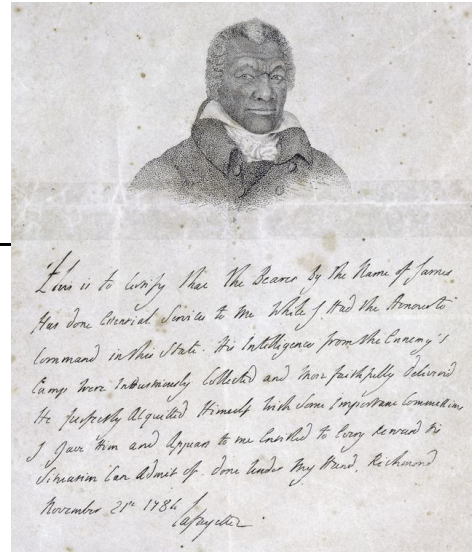 This is to Certify that the Bearer by the Name of James
Has done Essential Services to me While I Had the Honour to
Command in this State. His Intelligence from the Ennemy's
Camp were Industriously Collected and More faithfully deliverd
He perfectly Acquitted Himself with Some Important Commissions
I Gave Him and Appears to me Entitled to Every Reward his
Situation Can Admit of. Done Under my Hand, Richmond
November 21st 1784
Lafayette